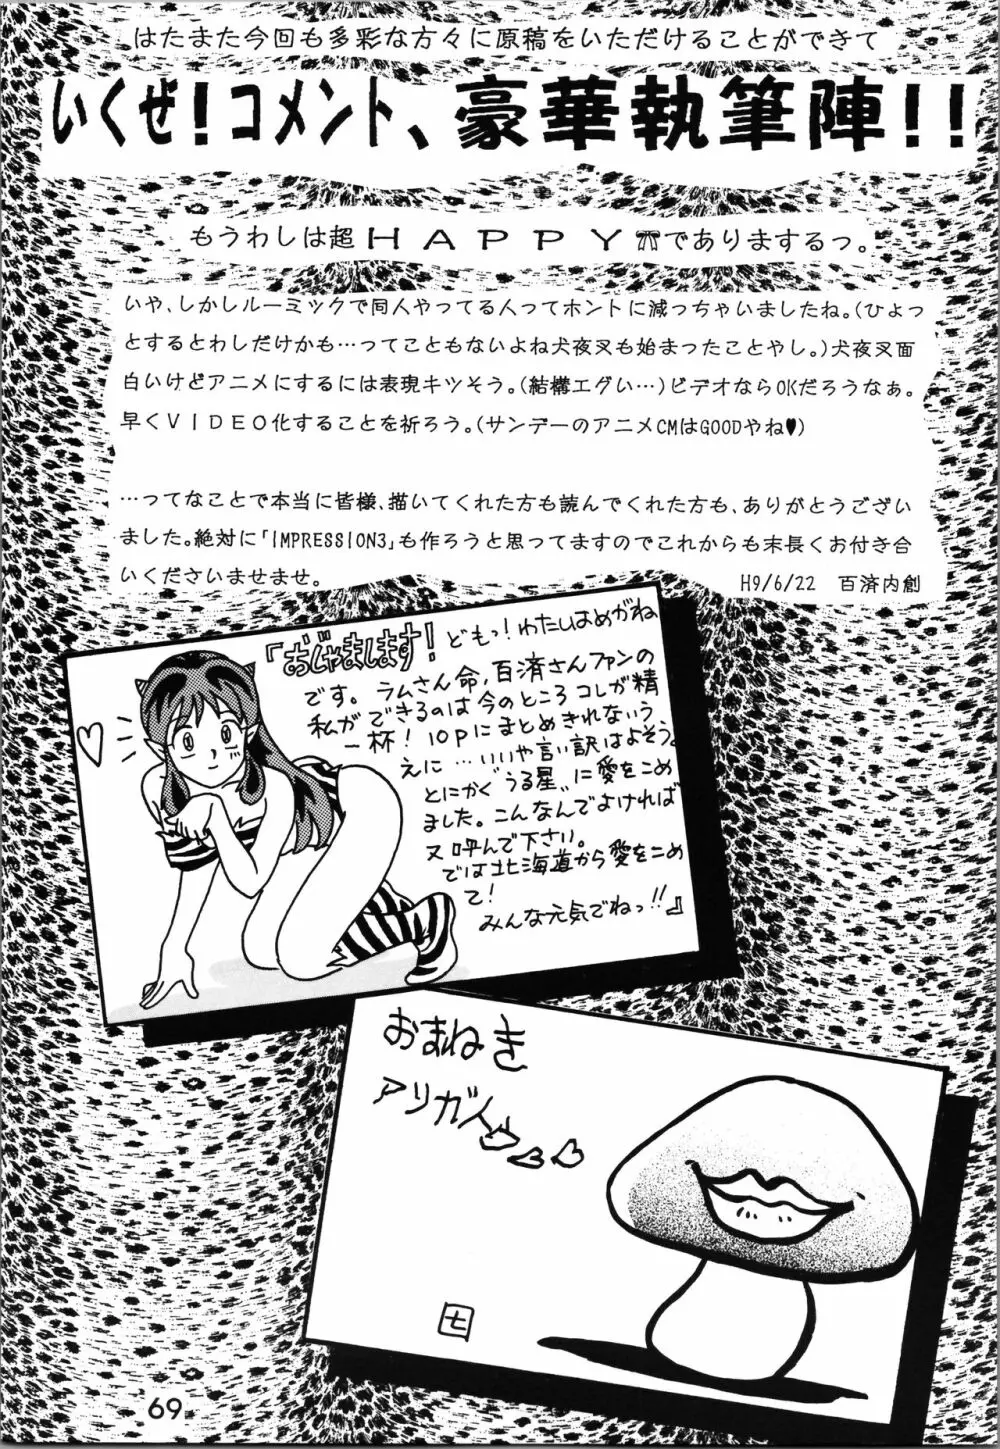 はたまた今回も多彩な方々に原稿をいただけることができて
いくぜ!コメント、豪華執筆陣!!
もうわしは超HAPPYでありまするっ。
いや、しかしルーミックで同人やってる人ってホントに減っちゃいましたね。(ひょっ
とするとわしだけかも…ってこともないよね犬夜叉も始まったことやし。)犬夜叉面
白いけどアニメにするには表現キツそう。(結構エグい…)ビデオならOKだろうなぁ。
早くVIDEO化することを祈ろう。(サンデーのアニメCMはGOODやね♥)
…ってなことで本当に皆様、描いてくれた方も読んでくれた方も、ありがとうござい
ました。絶対に「IMPRESSION3」も作ろうと思ってますのでこれからも末長くお付き合
いくださいませませ。
H9/6/22 百済内創
『おじゃまします! どもっ!わたしはめがね
です。ラムさん命,百済さんファンの
私ができるのは今のところコレが精
一杯!10Pにまとめきれないう
えに…いいや言い訳はよそう。
とにかく“うる星”に愛をこめ
ました。こんなんでよければ
又呼んで下さい。
では北海道から愛をこめ
て!
みんな元気でねっ!!』
おまねき
アリガト
七
69